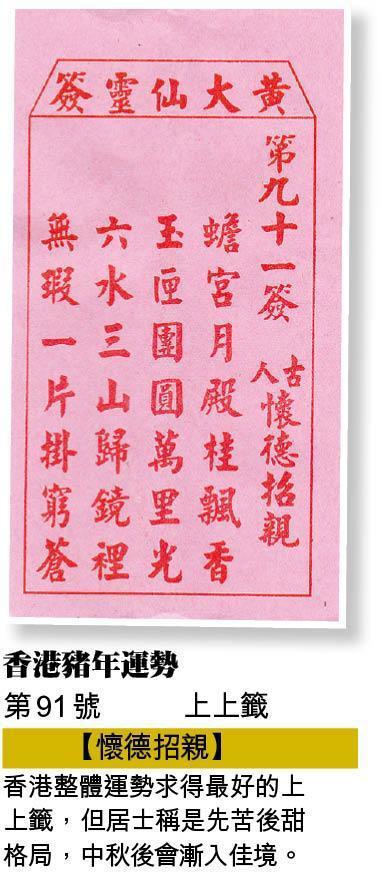 黃大仙靈簽
第九十一簽 古人懷德招親
蟾宮月殿桂飄香
玉匣團圓萬里光
六水三山歸鏡裡
無瑕一片掛穹蒼
香港豬年運勢
第91號 上上籤
【懷德招親】
香港整體運勢求得最好的上
上籤，但居士稱是先苦後甜
格局，中秋後會漸入佳境。